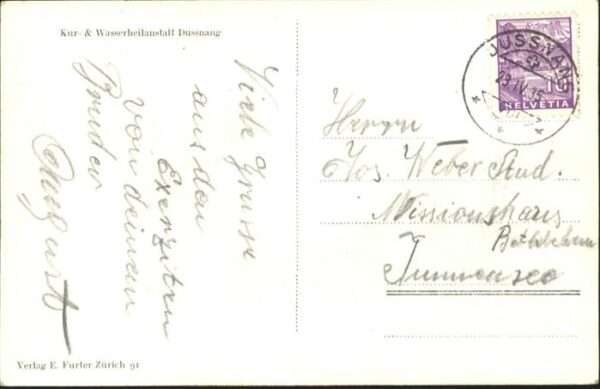 Kur- & Wasserheilanstalt Dussnang
Viele Grüsse
aus den
Exerzitien
von deinem
Bruder
August
Verlag E. Furter Zürich 91
DUSSNANG
23.IV.35
10
HELVETIA
Herrn
Jos. Weber Stud.
Missionshaus
Bethlehem
Immensee